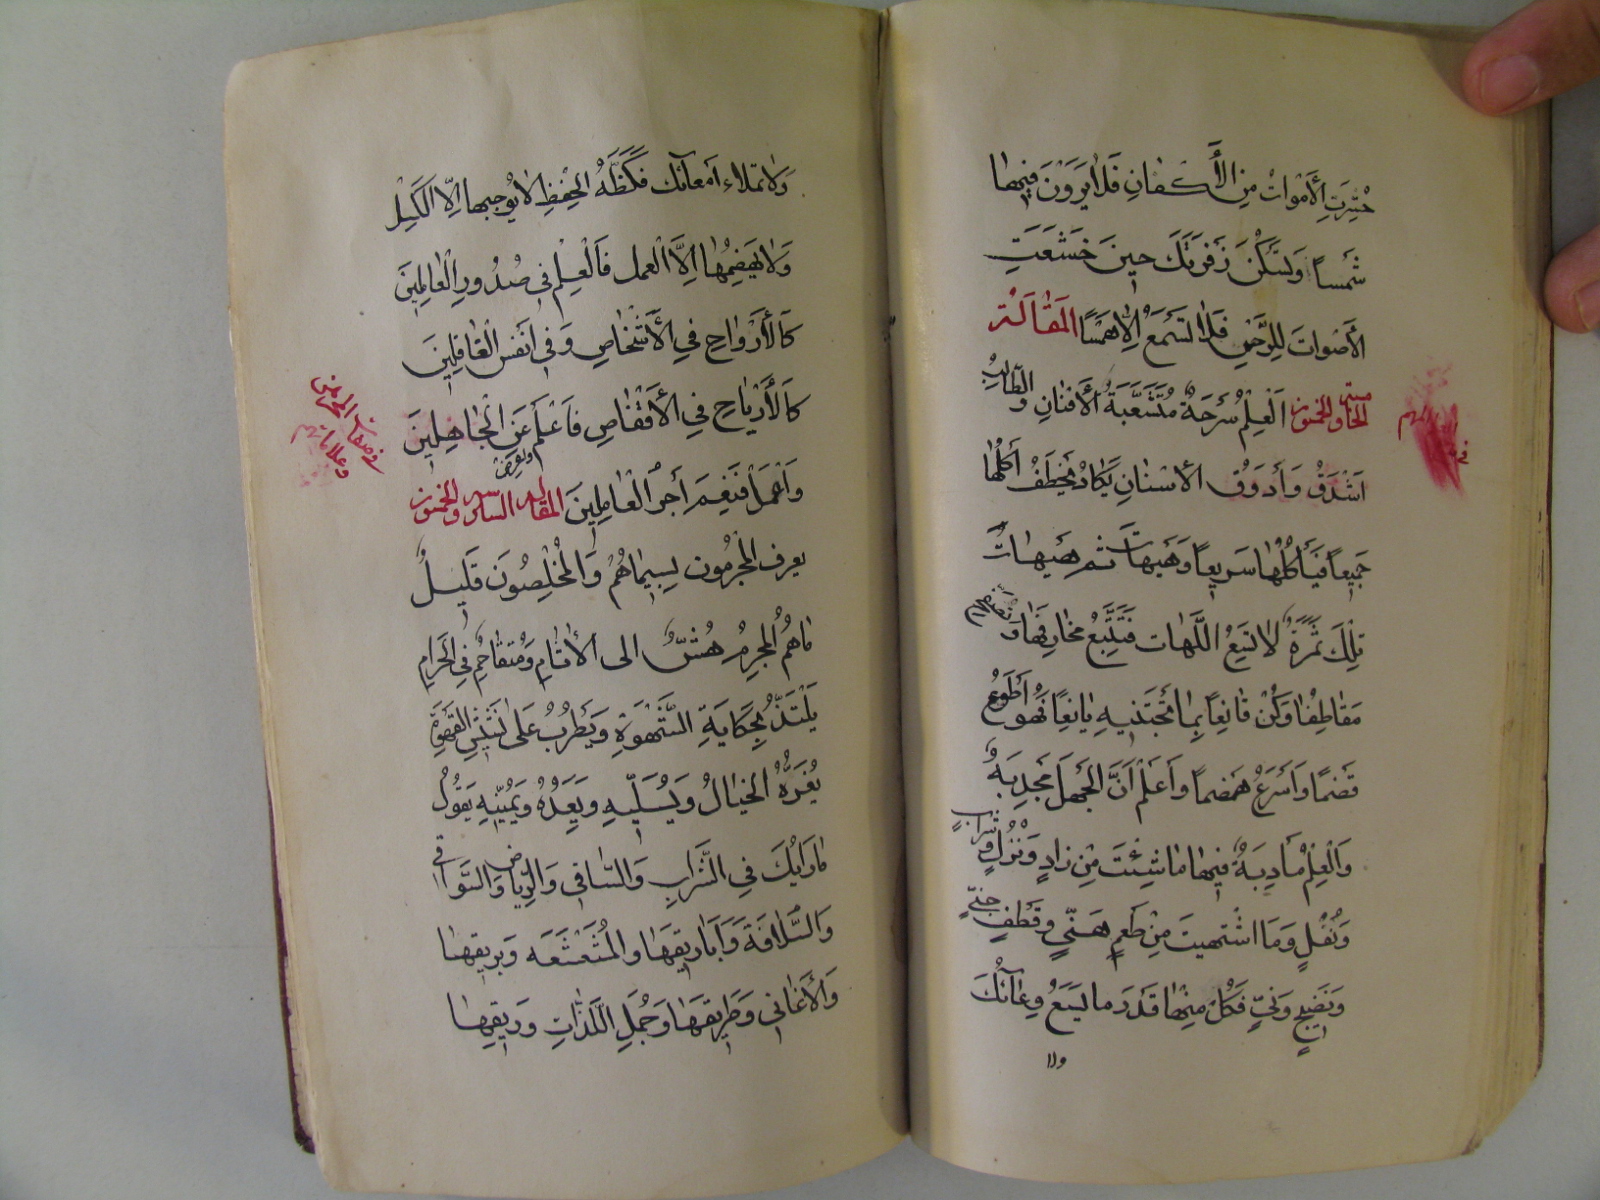 حُشِرَتِ الْأَمْوَاتُ مِنَ الْأَكْفَانِ فَلَا يَرَوْنَ فِيهَا
شَمْساً وَلتسكن زَفرتك حِينَ خَشَعَتِ
الْأَصْوَات لِلرَّحْمٰنِ فَلَا تَسْمَعُ إِلَّا هَمْسًا المَقَالَة
الخَامِسَة والخمسون اَلْعِلْمُ سَرْحَةٌ مُتَشَعِّبَةُ الْأَفْنَانِ وَالطَّالِبُ
اَشْدَقُ وَأَدْوَقُ الأَسْنَانِ يَكَادُ يَخْطَفُ أُكُلَهَا
جَمِيعاً فَيَأْكُلُهَا سَرِيعاً وَهَيهَاتَ ثم هَيهَاتَ
تِلْكَ ثَمَرَةٌ لَا تَسَعُ اللَّهَات فَتَتَبَّعْ مَخَارِفَهَا وَ
مَقَاطِفَهَا وَكُنْ قَانِعاً بِمَا تَجْتَنِيهِ يَانِعًا فَهُوَ أَطْوَعُ
قَضْمًا وَأَسْرَعُ هَضماً وَاعْلَمْ اَنَّ الْجَهْلَ مَجْدَبَةٌ
وَالْعِلْمُ مَأْدِبَةٌ فِيهَا مَا شِئْتَ مِنْ زَادٍ وَنُزُلٍ وَشَرَابٍ
وَنُقْلٍ وَمَا اشْتَهَيتَ مِنْ طَعْمٍ هَنِيٍّ وَقَطْفٍ جَنِيٍّ
وَنَضِيجٍ وَنِيٍّ فَكُلْ مِنْهَا قَدْرَ مَا يَسَعُ وِعَاؤُكَ
ولا
وَلَا تملاء أمعاءَك فَكِظَّةُ الْحِفْظِ لَا يُوجِبهَا إِلَّا الْكَسَلُ
وَلَا يَهْضِمُهَا إِلَّا الْعَمل فَالْعِلْمُ فِي صُدُورِ الْعَالِمِينَ
كَالْأَرْوَاحِ فِي الْأَشْخَاصِ وَفِي أَنْفُسِ الْغَافِلِينَ
كَالْأَرْيَاحِ فِي الْأَقْفَاصِ فَاعْلَم وَأَعْرِضْ عَنِ الْجَاهِلِينَ
وَاعْمَلْ فَنِعْمَ أَجْرُ الْعَامِلِينَ المقالة السادسة والخمسون
يعرف الْمُجْرِمُون بِسِيمَاهُمْ وَالْمُخْلِصُونَ قَلِيلٌ
مَا هُمْ الْمُجْرِمُ هَشٌّ الى الْأَثَامِ وَمُتَقَاحِمٌ فِي الْحَرَامِ
يَلْتَذُّ بِحِكَايَةِ الشَّهْوَةِ وَيَطْرَبُ عَلَى القَهْوَةِ
يَغُرُّهُ الْخَيَالُ وَيُسَلِّيهِ وَيَعِدُهُ وَيُمَنِّيهِ يَقُولُ
مَا رَأيُكَ فِي الشَّرَابِ وَالسَّاقِي وَالرِّيَاضِ وَالسَّوَاقِي
وَالسُّلَافَةِ وَأَبَارِيقِهَا وَالْمُشَعْشَعَه وَبريقِهَا
وَالْأَغَانِي وَطَرِيقِهَا وَجُمَلِ اللَّذَّاتِ وَرَيِّقِهَا